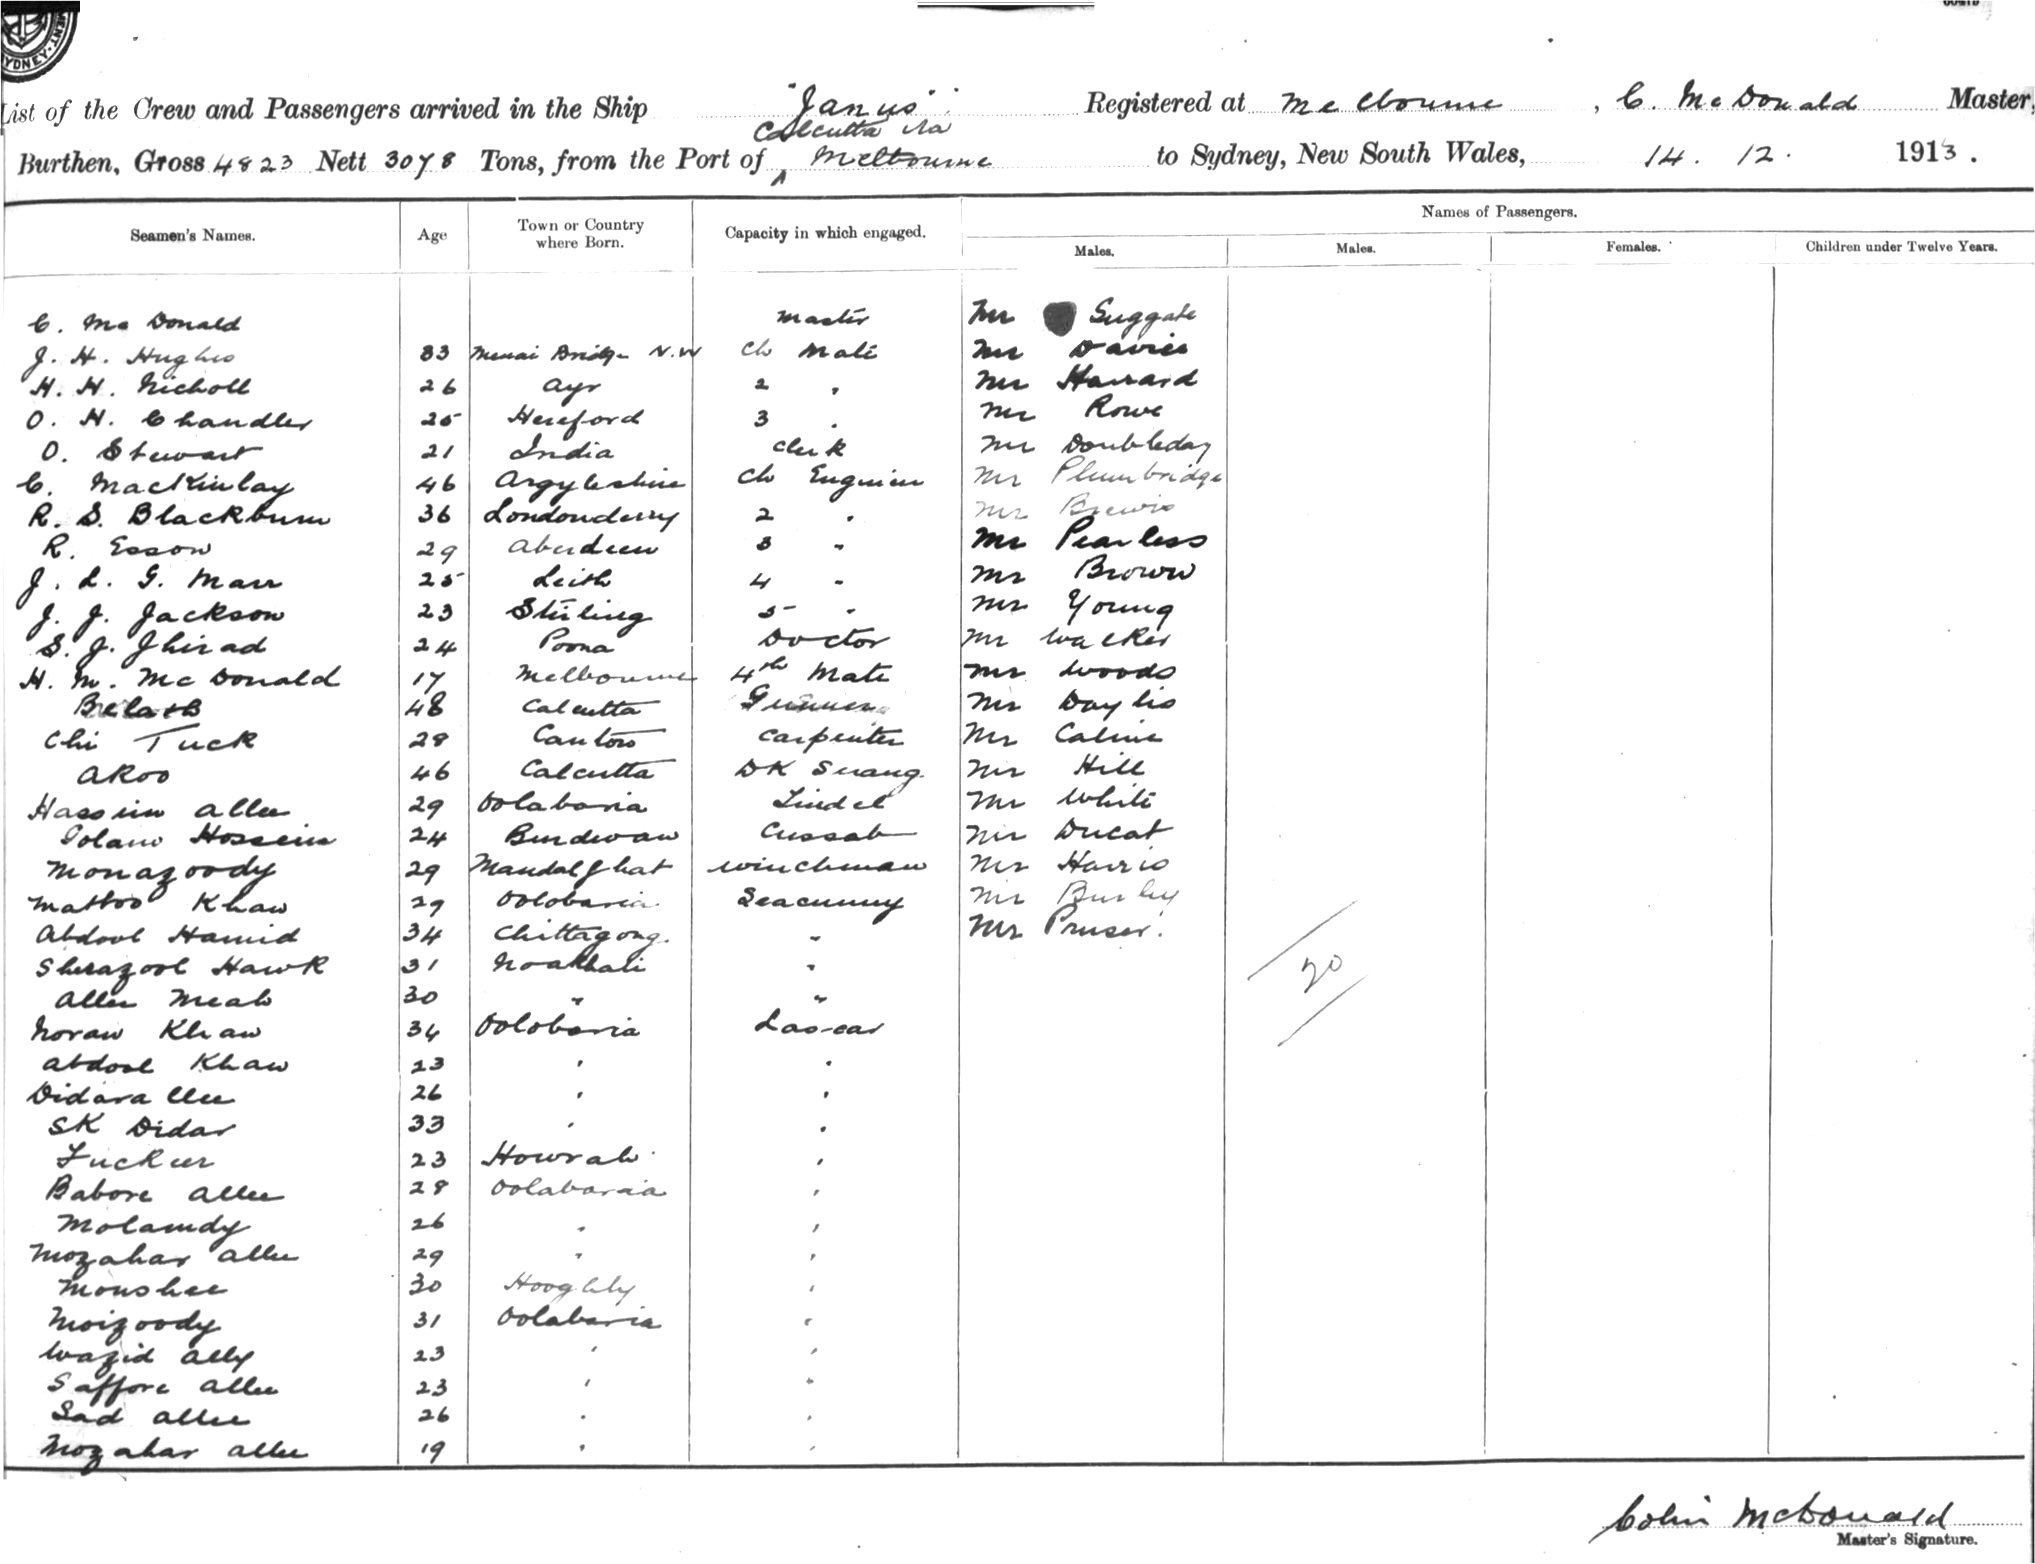 SYDNEY
List of the Crew and Passengers arrived in the Ship "Janus" Registered at Melbourne, C. McDonald Master,
Calcutta via
Burthen, Gross 4823 Nett 3078 Tons, from the Port of Melbourne to Sydney, New South Wales, 14. 12. 1913.
Names of Passengers.
Seamen's Names. Age Town or Country where Born. Capacity in which engaged. Males. Males. Females. Children under Twelve Years.
C. McDonald Master Mr Suggate
J. H. Hughes 33 Menai Bridge N.W Ch Mate Mr Davies
H. H. Nicholl 26 Ayr 2 " Mr Harrard
O. H. Chandler 25 Hereford 3 " Mr Rowe
O. Stewart 21 India Clerk Mr Doubleday
C. MacKinlay 46 Argyleshire Ch Engineer Mr Plumbridge
R. S. Blackburn 36 Londonderry 2 " Mr Brewis
R. Esson 29 Aberdeen 3 " Mr Pearless
J. L. G. Marr 25 Leith 4 " Mr Brown
J. J. Jackson 23 Stirling 5 " Mr Young
S. J. Jhirad 24 Poona Doctor Mr Walker
H. M. McDonald 17 Melbourne 4th Mate Mr Woods
48 Calcutta Gunner Mr Baylis
Chi Tuck 28 Canton Carpenter Mr
Akoo 46 Calcutta DK Serang Mr Hill
Hassim Allee 29 Oolabaria Tindel Mr White
Golam Hossein 24 Burdwan Cussab Mr Ducat
Monazoody 29 Mandalghat Winchman Mr Harris
Mattoo Khan 29 Oolobaria Seacunny Mr Burley
Abdool Hamid 34 Chittagong. " Mr Pruser.
Sherazool Hawk 31 Noakhali "
Allee Meah 30 " "
Noraw Khan 34 Oolobaria Lascar
20
Abdool Khan 23 " "
Didarallee 26 " "
SK Didar 33 " "
Fuckeer 23 Howrah "
Babore Allee 28 Oolabaria "
Molamdy 26 " "
Mozahar Allee 29 " "
Monshee 30 Hooghly "
Moizoody 31 Oolabaria "
Wazid Ally 23 " "
Saffore Allee 23 " "
Sad Allee 26 " "
Mozahar Allee 19 " "
Colin McDonald
Master's Signature.